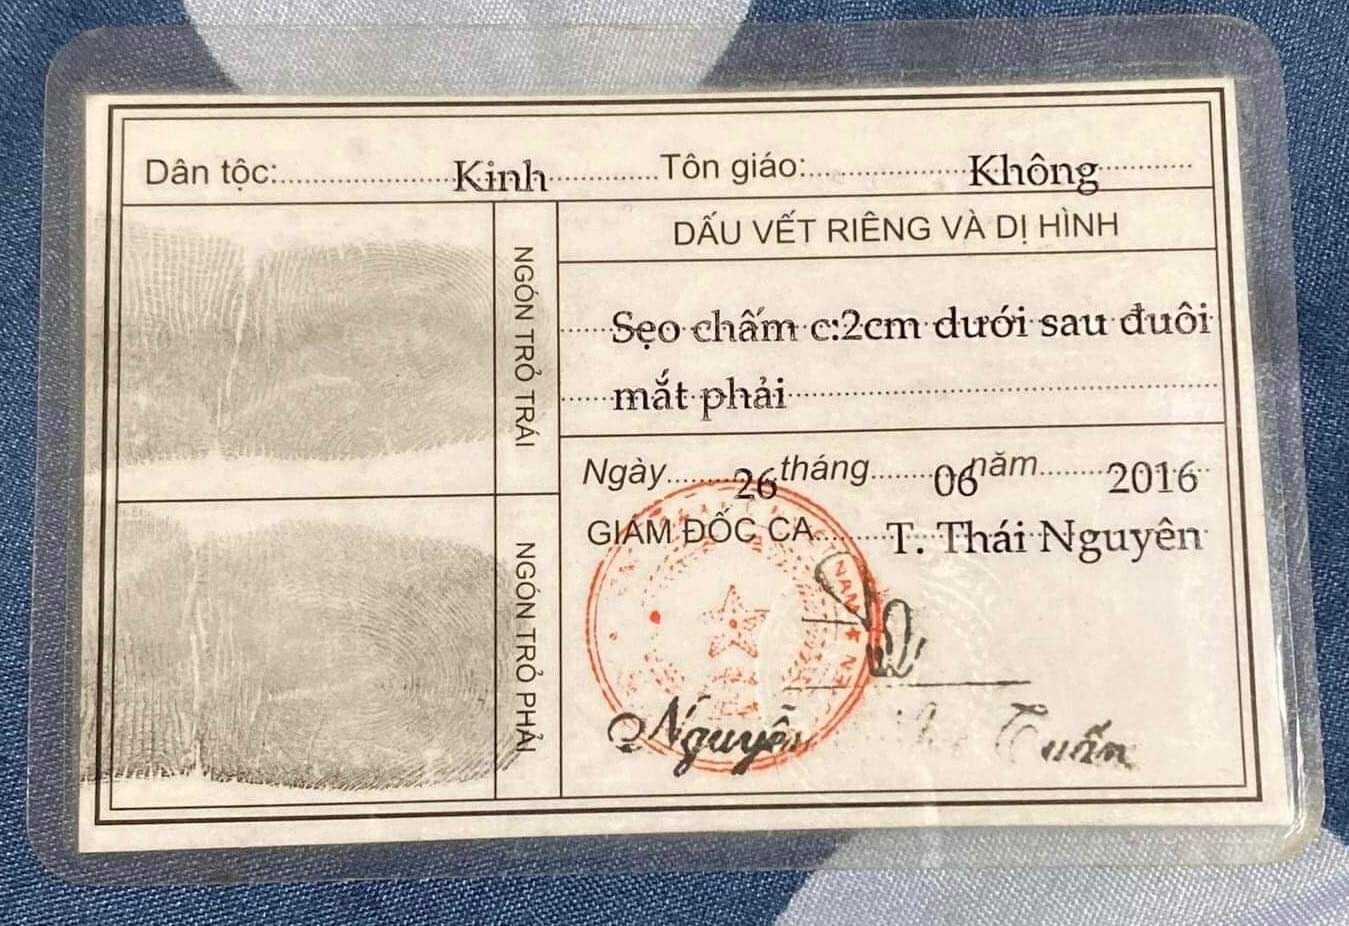 Dân tộc: Kinh Tôn giáo: Không
NGÓN TRỎ TRÁI
DẤU VẾT RIÊNG VÀ DỊ HÌNH
Sẹo chấm c:2cm dưới sau đuôi
mắt phải
Ngày 26 tháng 06 năm 2016
GIÁM ĐỐC CA T. Thái Nguyên
NGÓN TRỎ PHẢI
NAM
Nguyễn Tuấn